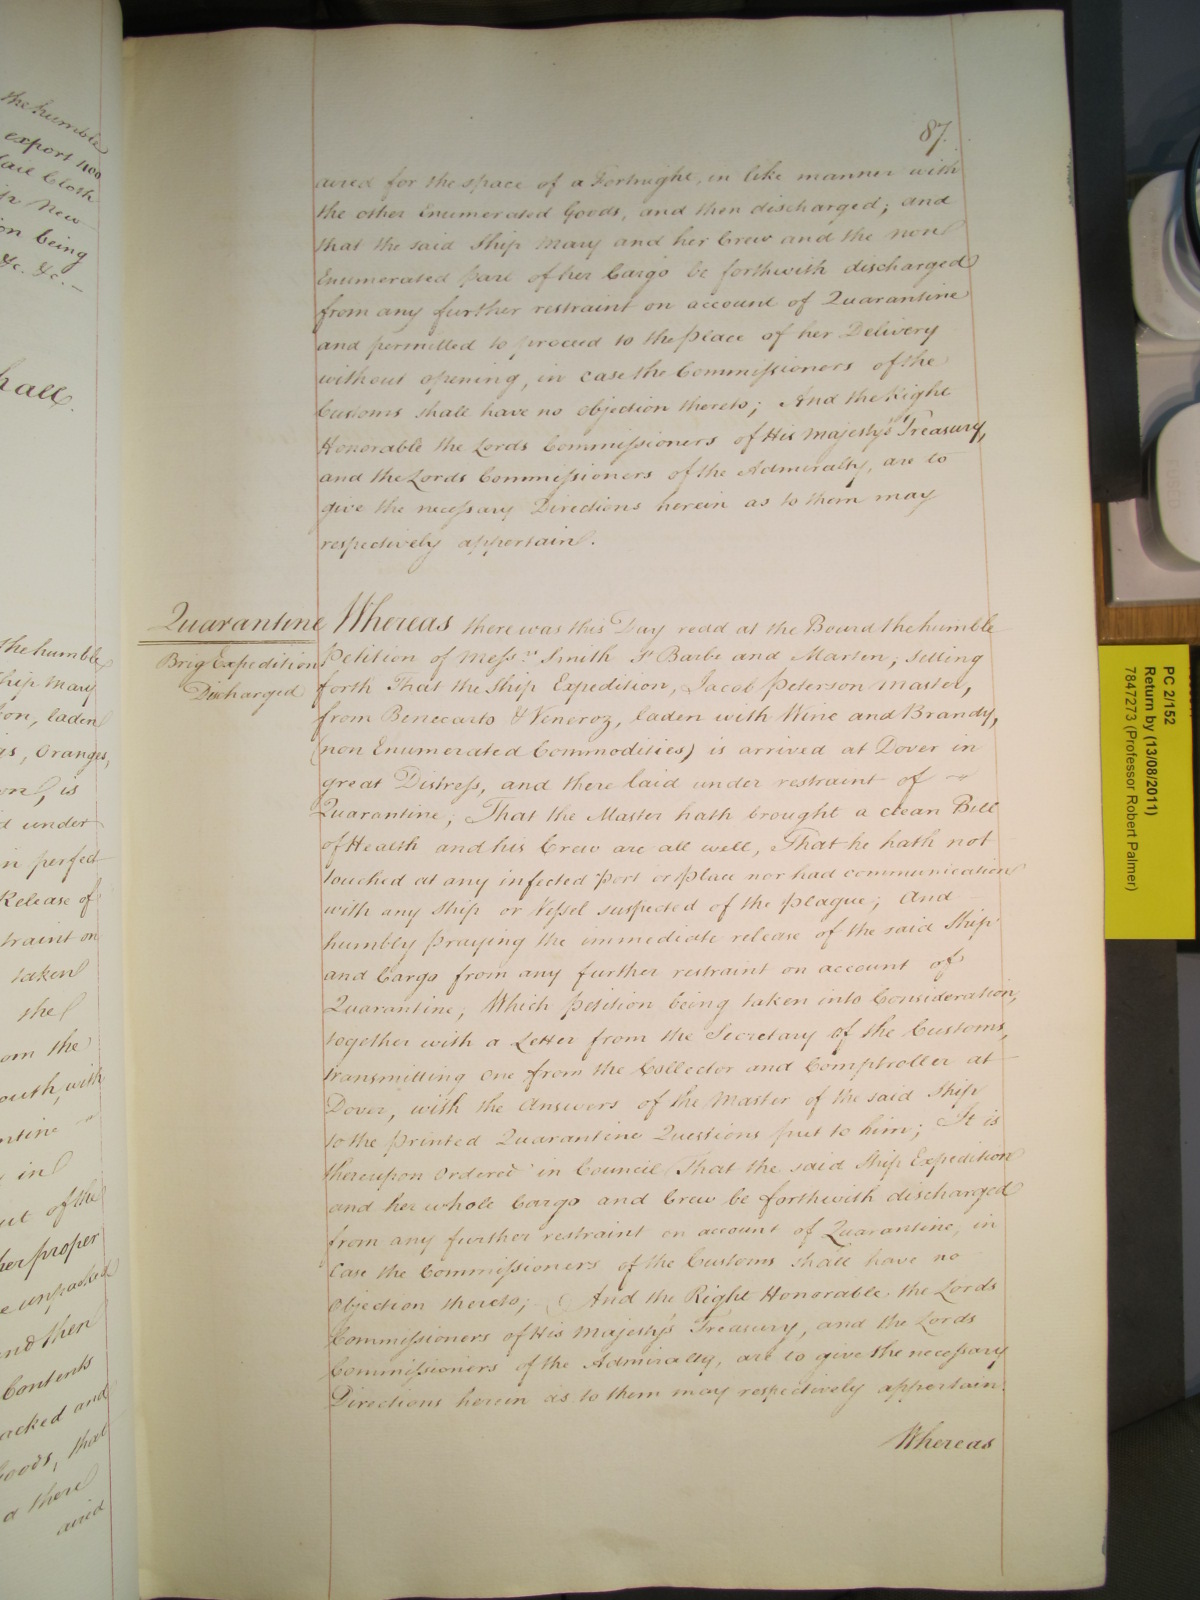 the humble
export 1100
Sail Cloth
New
being
&c. &c. –
hall.
the humble
Ship Mary
laden
Oranges,
is
under
in perfect
Release of
restraint on
taken
the
from the
with
in
out of the
her proper
unpacked
and then
Contents
packed and
Goods, that
there
aired
87.
aired for the space of a Fortnight, in like manner with
the other Enumerated Goods, and then discharged; and
that the said Ship Mary and her Crew and the non
Enumerated part of her Cargo be forthwith discharged
from any further restraint on account of Quarantine
and permitted to proceed to the place of her Delivery
without opening, in case the Commissioners of the
Customs shall have no objection thereto; And the Right
Honorable the Lords Commissioners of His Majesty's Treasury,
and the Lords Commissioners of the Admiralty, are to
give the necessary Directions herein as to them may
respectively appertain.
Quarantine
Brig Expedition
Discharged
Whereas there was this Day read at the Board the humble
Petition of Messrs Smith St Barbe and Marten; setting
forth That the Ship Expedition, Jacob Peterson Master,
from Benecarlo & Veneroz, laden with Wine and Brandy,
(non Enumerated Commodities) is arrived at Dover in
great Distress, and there laid under restraint of
Quarantine; That the Master hath brought a clean Bill
of Health and his Crew are all well, That he hath not
touched at any infected Port or place nor had communication
with any Ship or Vessel suspected of the plague; And
humbly praying the immediate release of the said Ship
and Cargo from any further restraint on account of
Quarantine; Which petition being taken into Consideration,
together with a Letter from the Secretary of the Customs,
transmitting one from the Collector and Comptroller at
Dover, with the Answers of the Master of the said Ship
to the printed Quarantine Questions put to him; It is
thereupon Ordered in Council That the said Ship Expedition
and her whole Cargo and Crew be forthwith discharged
from any further restraint on account of Quarantine, in
Case the Commissioners of the Customs shall have no
Objection thereto; And the Right Honorable the Lords
Commissioners of His Majesty's Treasury, and the Lords
Commissioners of the Admiralty, are to give the necessary
Directions herein as to them may respectively appertain.
Whereas
PC 2/152
Return by (13/08/2011)
7847273 (Professor Robert Palmer)